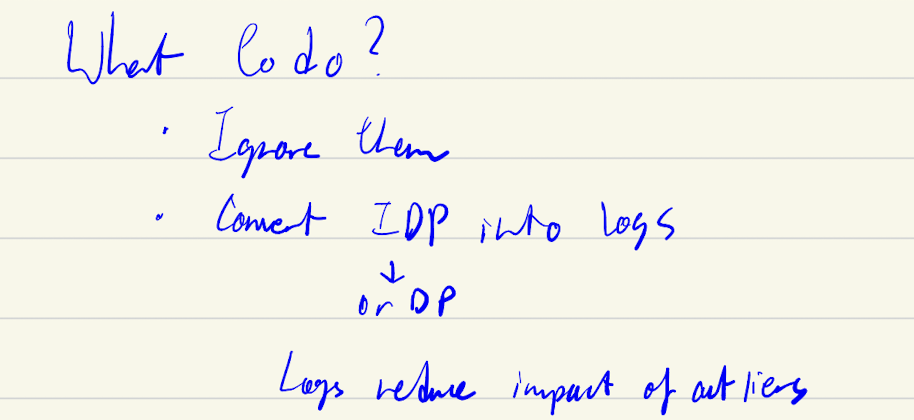 What to do?
· Ignore them
· Convert IDP into logs
↓
or DP
Logs reduce impact of outliers